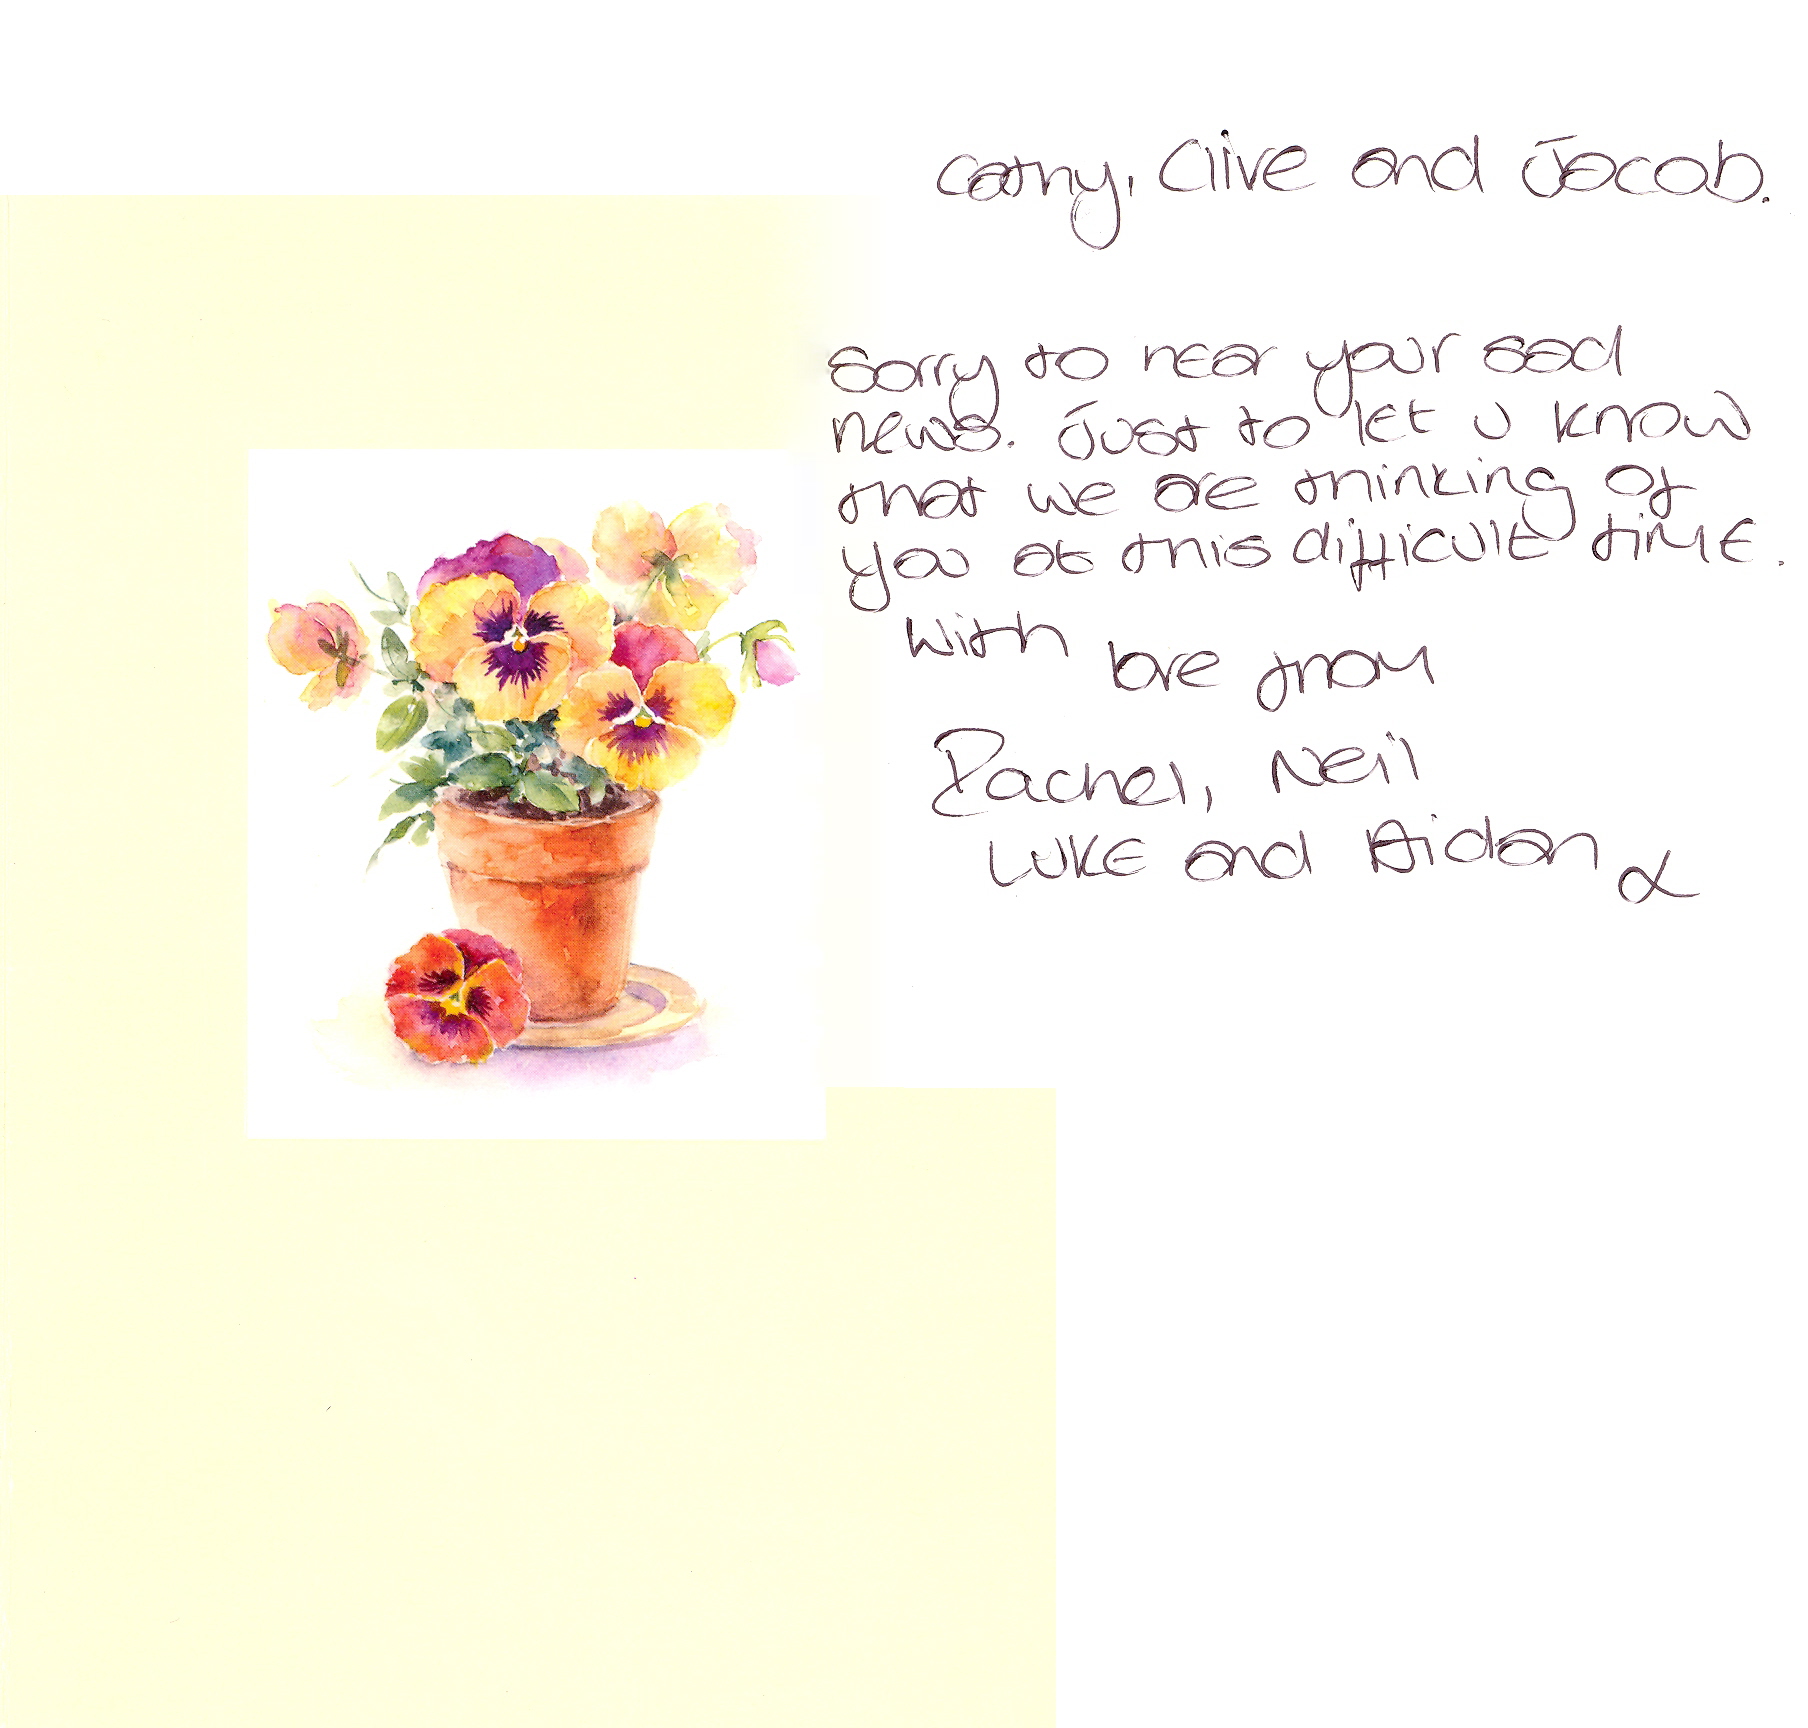 Cathy, Clive and Jacob.
Sorry to hear your sad
news. Just to let u know
that we are thinking of
you at this difficult time.
With love from
Rachel, Neil
Luke and Aidan x